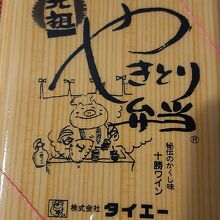 元祖
やきとり
弁当
®
秘伝のかくし味
十勝ワイン
株式会社 タイエー